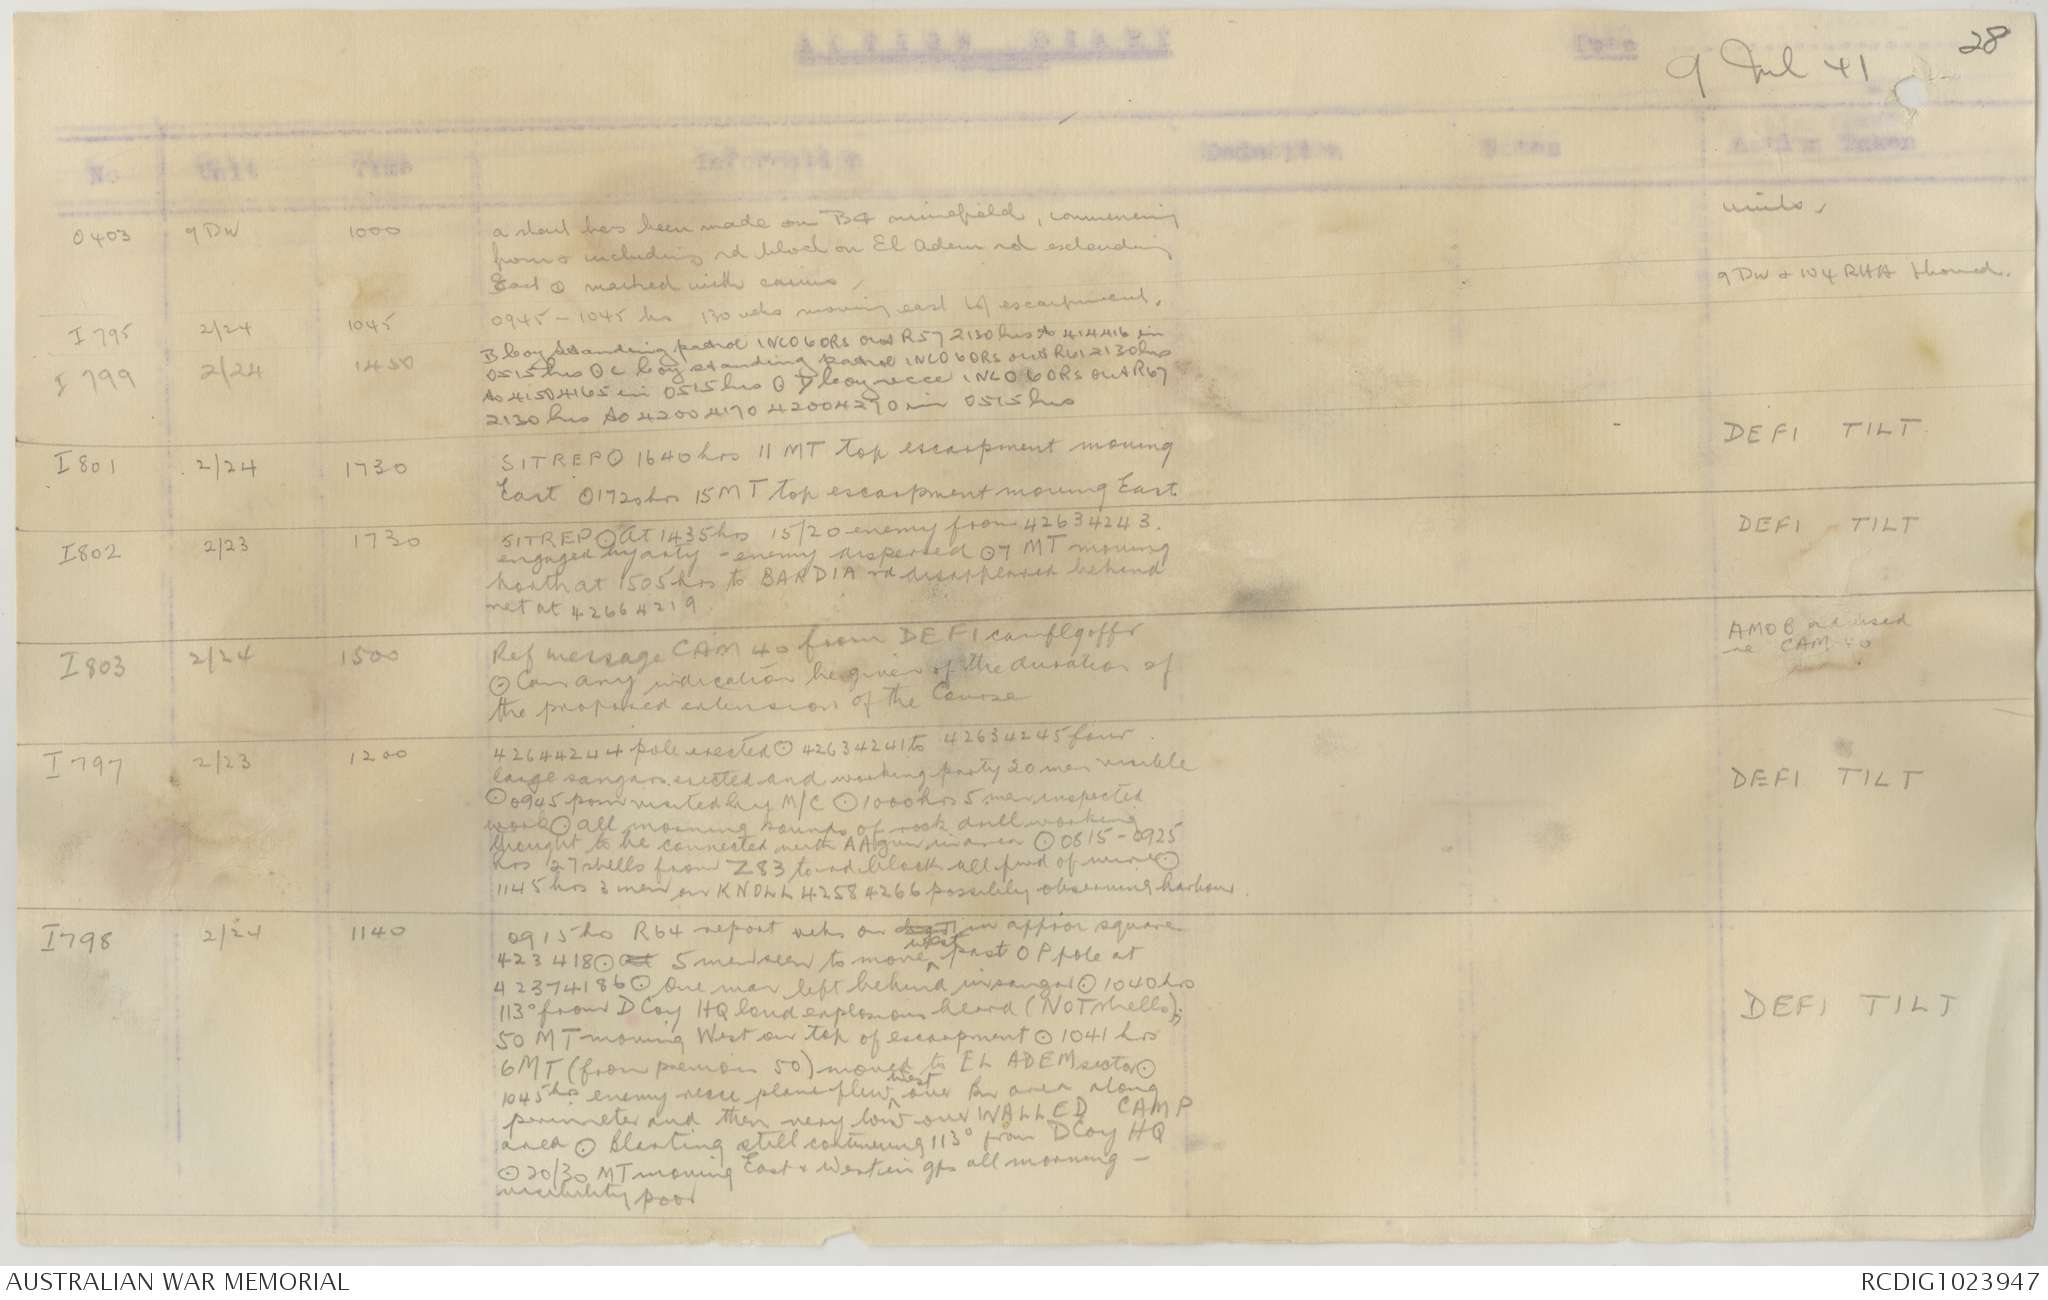 28
9 Jul 41
No Unit Time Information Deduction Notes Action Taken
units.
O403 9 DIV 1000 a start has been made on B4 minefield, commencing
from & including rd block on El Adem rd extending
East ⊙ marked with cairns.
9 Div & 104 RHA phoned.
I795 2/24 1045 0945 - 1045 hrs 130 vehs moving east top escarpment.
I799 2/24 1450 B Coy standing patrol 1NCO 6ORs out R57 2130hrs to 414416 in
0515hrs ⊙ C Coy standing patrol 1NCO 6ORs out R61 2130hrs
to 41504165 in 0515hrs ⊙ D Coy recce 1NCO 6ORs out R67
2130hrs to 42004170 42004270 in 0515hrs
DEFI TILT
I801 2/24 1730 SITREP ⊙ 1640hrs 11 MT top escarpment moving
East ⊙ 1720hrs 15 MT top escarpment moving East
DEFI TILT
I802 2/23 1730 SITREP ⊙ At 1435hrs 15/20 enemy from 42634243.
engaged by arty - enemy dispersed ⊙ 7 MT moving
North at 1505hrs to BARDIA rd disappeared behind
net at 42664219
I803 2/24 1500 Ref message CAM 40 from DEFI camflg offr
⊙ Can any indication be given of the duration of
the proposed extension of the Course
AMOB advised
re CAM 40
I797 2/23 1200 42644244 pole erected ⊙ 42634241 to 42634245 four
large sangars erected and working party 20 men visible
⊙ 0945 posn visited by M/C ⊙ 1000hrs 5 men inspected
work ⊙ all morning sounds of rock drill working
thought to be connected with AA gun in area ⊙ 0815 - 0925
hrs 27 shells from Z83 to rd block all fwd of wire ⊙
1145 hrs 3 men on KNOLL 42584266 possibly observing harbour.
DEFI TILT
I798 2/24 1140 0915 hrs R64 report vehs on in approx square
423418 ⊙ 5 men seen to move west past OP pole at
42374186 ⊙ One man left behind in sangar ⊙ 1040hrs
113° from D Coy HQ loud explosions heard (NOT shells);
50 MT moving West on top of escarpment ⊙ 1041 hrs
6MT (from previous 50) moved to EL ADEM sector ⊙
1045 hrs enemy recce plane flew west over Bn area along
perimeter and then very low over WALLED CAMP
area ⊙ Blasting still continuing 113° from D Coy HQ
⊙ 20/30 MT moving East & West in gps all morning -
visibility poor
DEFI TILT
AUSTRALIAN WAR MEMORIAL
RCDIG1023947